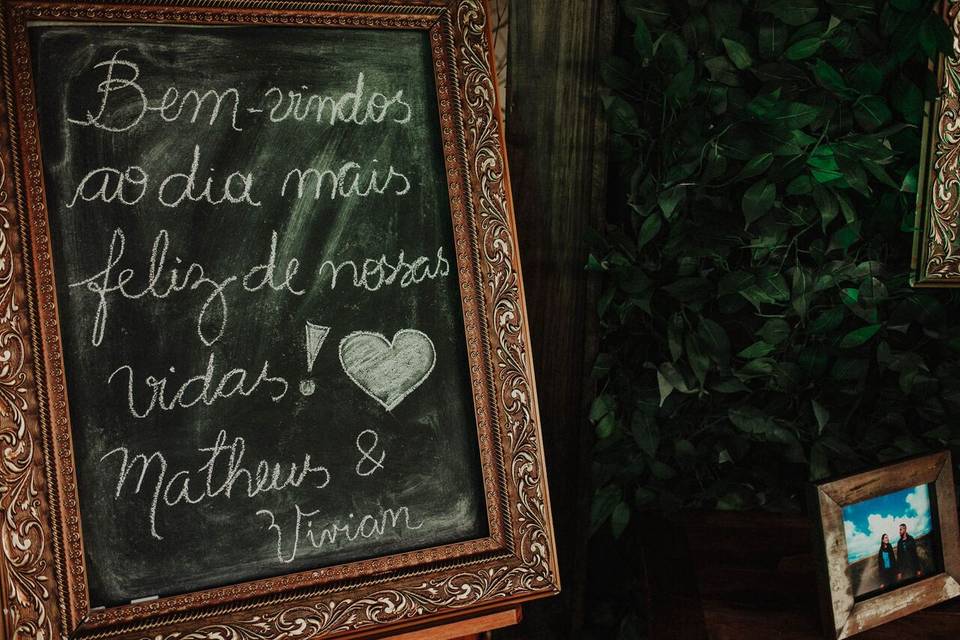 Bem-vindos
ao dia mais
feliz de nossas
vidas!
Matheus &
Vivian